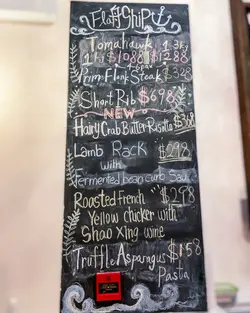 FlagShip
Tomahawk 1.3kg
$1088 $1288
4-6pax
Prim Flank Steak $328
Short Rib $698
NEW
Hairy Crab Butter Risotto $368
Lamb Rack $298
with
Fermented bean curb Sauce
Roasted French $298
Yellow chicken with
Shao Xing wine
Truffle Asparagus $158
Pasta